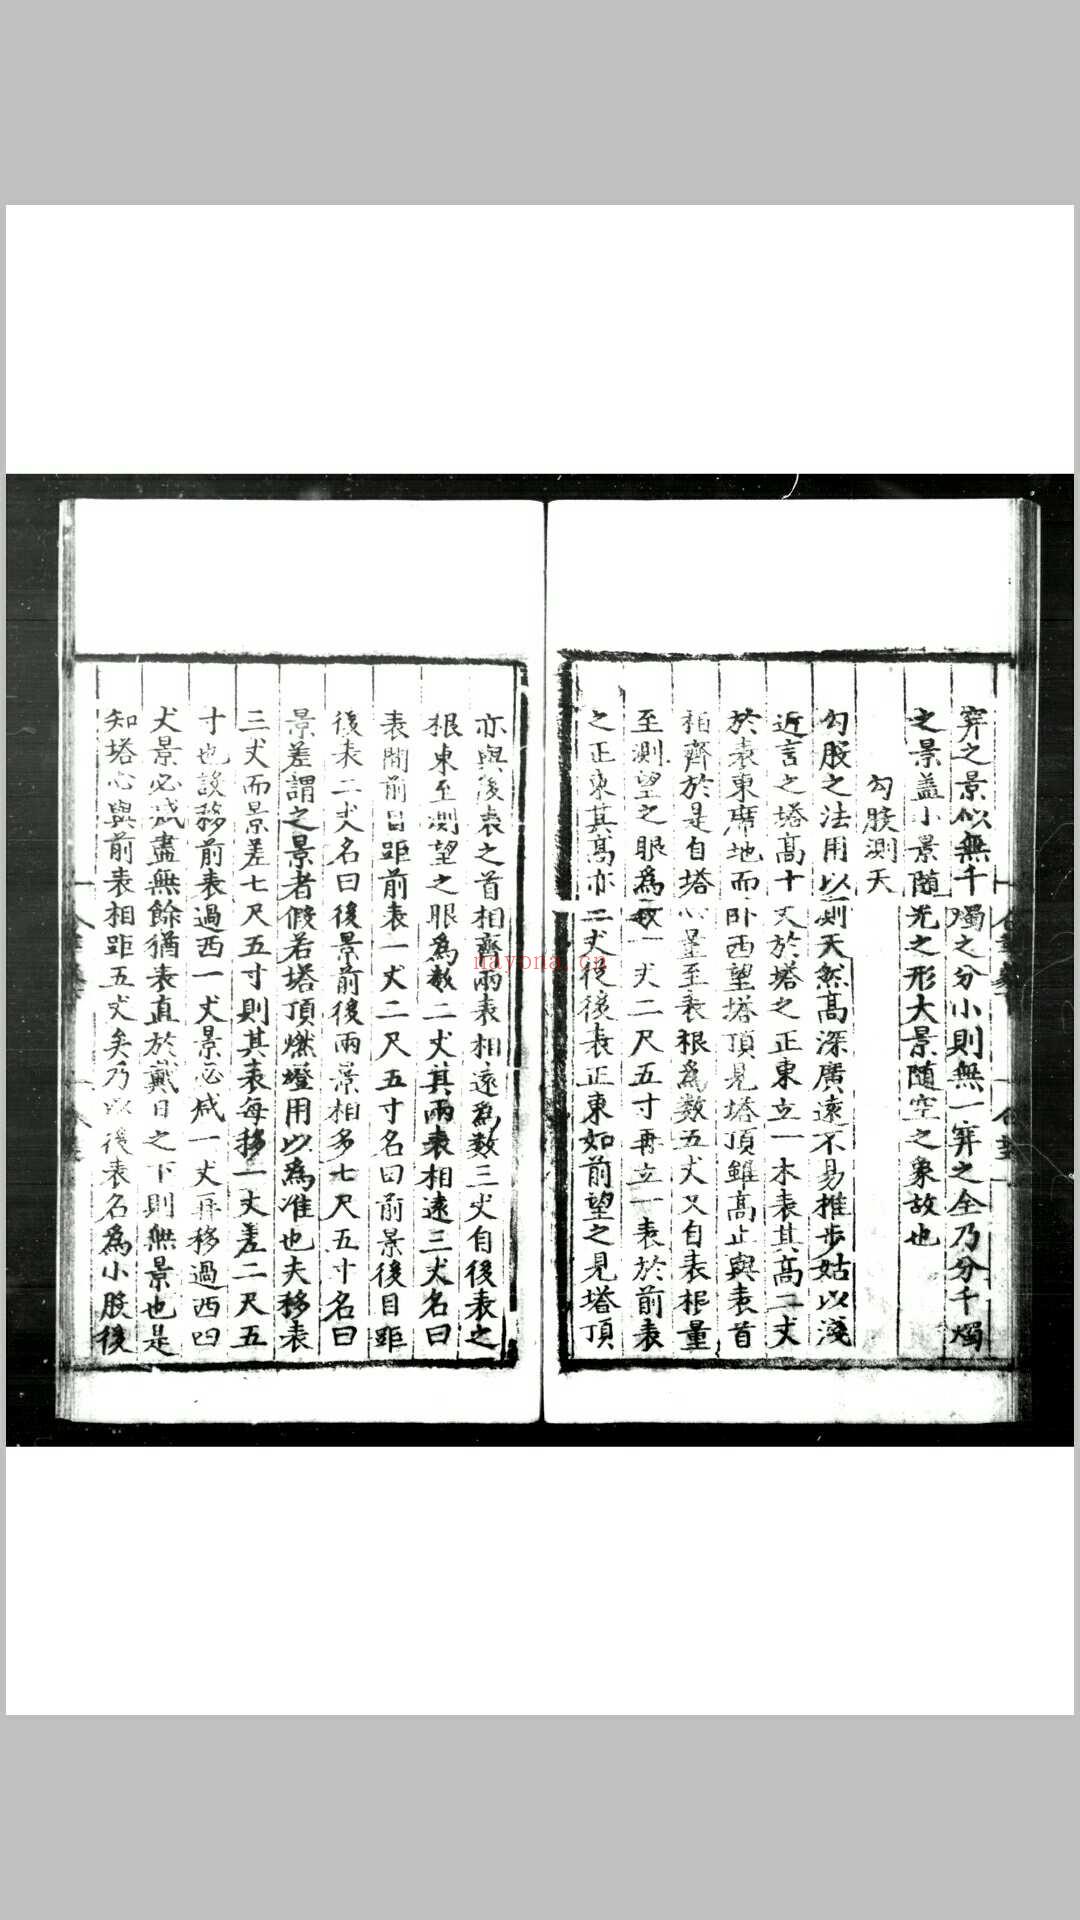 穽之景似無千燭之分小則無一穽之全乃分千燭
之景蓋小景隨光之形大景隨空之象故也
勾股測天
勾股之法用以測天然高深廣遠不易推步姑以淺
近言之塔高十丈於塔之正東立一木表其高二丈
於表東席地而卧西望塔頂見塔頂雖高止與表首
相齊於是自塔心量至表根為数五丈又自表根量
至測望之眼為数一丈二尺五寸再立一表於前表
之正東其高亦二丈從後表正東如前望之見塔頂
亦與後表之首相齊兩表相遠為数三丈自後表之
根東至測望之眼為数二丈其兩表相遠三丈名曰
表間前目距前表一丈二尺五寸名曰前景後目距
後表二丈名曰後景前後兩景相多七尺五寸名曰
景差謂之景者假若塔頂燃燈用以為准也夫移表
三丈而景差七尺五寸則其表每移一丈差二尺五
寸也設移前表過西一丈景必減一丈再移過西四
丈景必減盡無餘猶表直於戴日之下則無景也是
知塔心與前表相距五丈矣乃以後表名為小股後
nayona.cn